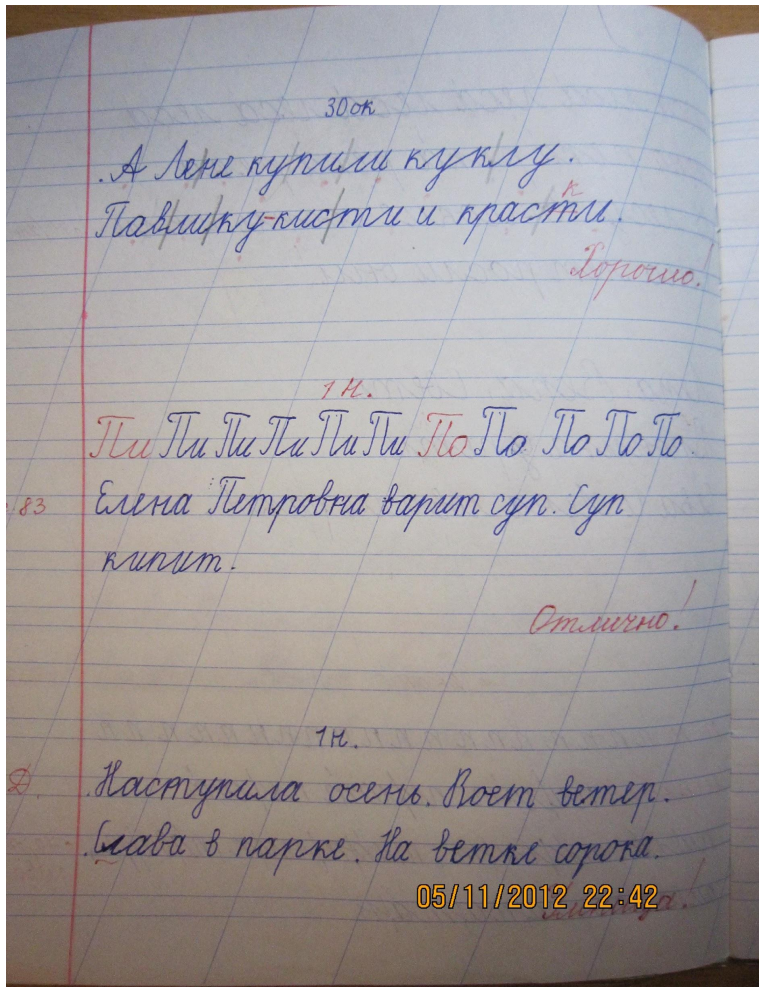 30 ок
А Лене купили куклу.
к
Павлику-кисти и красти.
Хорошо!
1 н.
Пи Пи Пи Пи Пи Пи По По По По По
83 Елена Петровна варит суп. Суп
кипит.
Отлично!
1 н.
Д. Наступила осень. Воет ветер.
Слава в парке. На ветке сорока.
05/11/2012 22:42